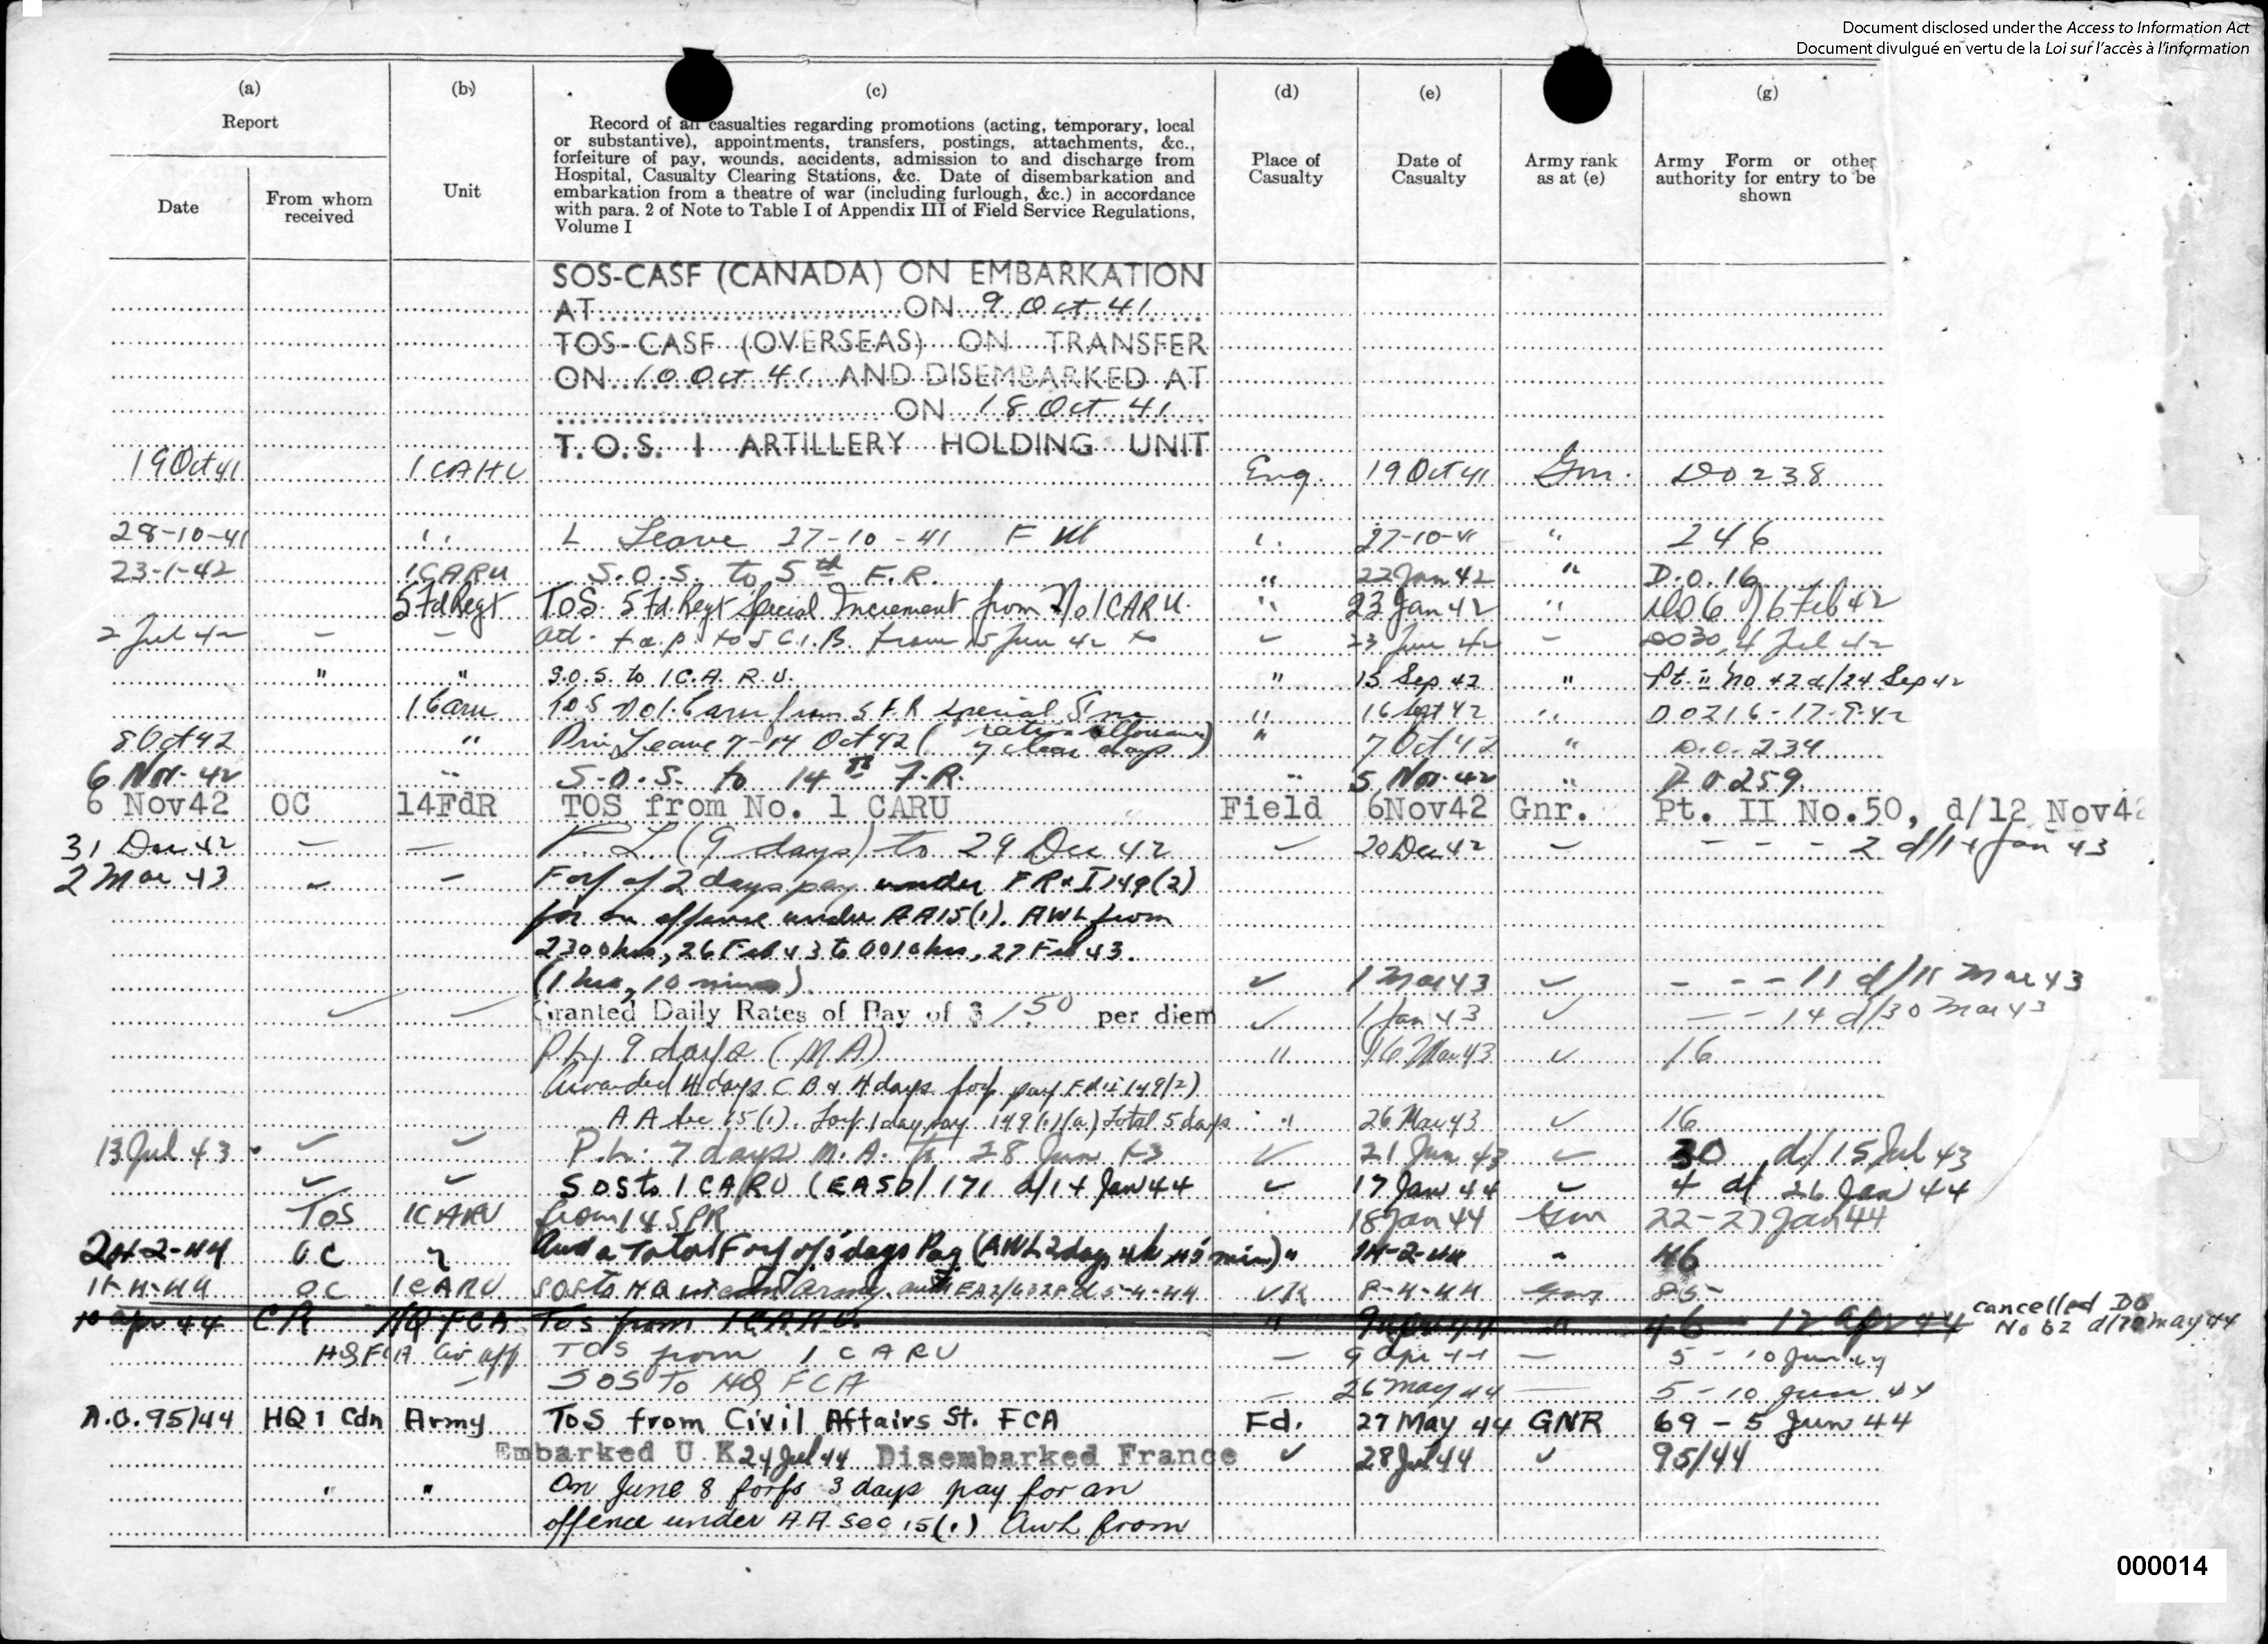 Document disclosed under the Access to Information Act
Document divulgué en vertu de la Loi sur l'accès à l'information
(a) (b) (c) (d) (e) (g)
Report
Date
From whom
received
Unit
Record of all casualties regarding promotions (acting, temporary, local
or substantive), appointments, transfers, postings, attachments, &c.,
forfeiture of pay, wounds, accidents, admission to and discharge from
Hospital, Casualty Clearing Stations, &c. Date of disembarkation and
embarkation from a theatre of war (including furlough, &c.) in accordance
with para. 2 of Note to Table I of Appendix III of Field Service Regulations,
Volume I
Place of
Casualty
Date of
Casualty
Army rank
as at (e)
Army Form or other
authority for entry to be
shown
SOS-CASF (CANADA) ON EMBARKATION
AT ON 9 Oct 41
TOS-CASF (OVERSEAS) ON TRANSFER
ON 10 Oct 41 AND DISEMBARKED AT
ON 18 Oct 41
T.O.S. 1 ARTILLERY HOLDING UNIT
19 Oct 41 1 CAHU Eng. 19 Oct 41 Gnr. DO 238
28-10-41 " L Leave 27-10-41 " 27-10-41 " 246
23-1-42 1 CARU S.O.S. to 5th F.R. " 22 Jan 42 " D.O.16
5 Fd Regt T.O.S. 5 Fd. Regt Special Increment from No 1 CARU. " 23 Jan 42 " DO 6 d/6 Feb 42
2 Jul 42 – – Att. to S.C.I.B. from 15 Jun 42 to 23 Jun 42 – DO30, 4 Jul 42
" " S.O.S. to 1 C.A.R.U. " 15 Sep 42 " Pt. ii No 42 d/24 Sep 42
1 Caru TOS No 1 Caru from 5 F.R special " 16 Sept 42 " DO216-17-9-42
8 Oct 42 " Priv Leave 7-14 Oct 42 (ration allowance 7 clear days) " 7 Oct 42 " D.O. 234
6 Nov. 42 " S.O.S. to 14th F.R. " 5 Nov. 42 " D O 259
6 Nov42 OC 14FdR TOS from No. 1 CARU Field 6Nov42 Gnr. Pt. II No.50, d/12 Nov42
31 Dec 42 – – P. L (9 days) to 29 Dec 42 20 Dec 42 – – – – 2 d/14 Jan 43
2 Mar 43 – Forf of 2 days pay under FR&I 149(2)
for an offence under AA15(1). AWL from
2300 hrs, 26 Feb 43 to 0010 hrs, 27 Feb 43.
(1 hrs, 10 mins). 1 Mar 43 – – – 11 d/11 Mar 43
Granted Daily Rates of Pay of $ 1.50 per diem 1 Jan 43 – – 14 d/30 Mar 43
P.L. 9 days (M.A) " 16 Mar 43 16
Awarded 4 days C B & 4 days forf. pay FR&I 149(2)
AA Sec 15(1). Forf. 1 day pay 149(1)(a) Total 5 days " 26 Mar 43 16
13 Jul 43 P.L. 7 days M.A. to 28 Jun 43 21 Jun 43 30 d/15 Jul 43
SOS to 1 CARU (EASO/171 d/14 Jan 44 17 Jan 44 4 d/ 26 Jan 44
TOS 1CARU from 14 18 Jan 44 Gnr 22-27 Jan 44
OC Awd a Total Forf of 5 days Pay (AWL 2 days 4h 45 min) " 14-2-44 " 46
11-4-44 OC 1 CARU SOS to HQ Army. UK 8-4-44 Gnr 85
10 Apr 44 HQ FCA TOS from 1 CARU " 9 Apr 44 " 46 12 Apr 44
cancelled DO
No 62 d/20 May 44
HQ FCA Civ Aff TOS from 1 CARU – 9 Apr 44 – 5 - 10 Jun 44
SOS TO HQ FCA – 26 May 44 – 5-10 Jun 44
A.O.95/44 HQ 1 Cdn Army TOS from Civil Affairs St. FCA Fd. 27 May 44 GNR 69 - 5 Jun 44
Embarked U.K 24 Jul 44 Disembarked France 28 Jul 44 95/44
" " On June 8 forfs 3 days pay for an
offence under A.A. Sec 15(1) Awl from
000014